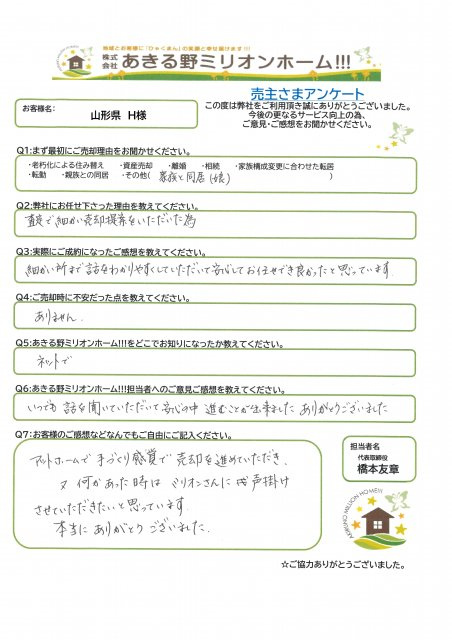 地域とお客様に「ひゃくまん」の笑顔と幸せ届けます!!!
株式会社 あきる野ミリオンホーム!!!
売主さまアンケート
お客様名:
山形県 H様
この度は弊社をご利用頂き誠にありがとうございました。
今後の更なるサービス向上の為、
ご意見・ご感想をお聞かせください。
Q1:まず最初にご売却理由をお聞かせください。
・老朽化による住み替え ・資産売却 ・離婚 ・相続 ・家族構成変更に合わせた転居
・転勤 ・親族との同居 ・その他( 家族と同居(娘) )
Q2:弊社にお任せ下さった理由を教えてください。
査定で細かい売却提案をいただいた為
Q3:実際にご成約になったご感想を教えてください。
細かい所まで話をわかりやすくしていただいて安心してお任せでき良かったと思っています.
Q4:ご売却時に不安だった点を教えてください。
ありません.
Q5:あきる野ミリオンホーム!!!をどこでお知りになったか教えてください。
ネットで
Q6:あきる野ミリオンホーム!!!担当者へのご意見ご感想を教えてください。
いつでも 話を聞いていただいて 安心の中 進むことが出来ました ありがとうございました
Q7:お客様のご感想などなんでもご自由にご記入ください。
アットホームで 手づくり感覚で 売却を進めていただき.
又 何かあった時は ミリオンさんに 声掛け
させていただきたいと思っています.
本当に ありがとう ございました.
担当者名
代表取締役
橋本友章
AKIRUNO MILLION HOME!!!
☆ご協力ありがとうございました。